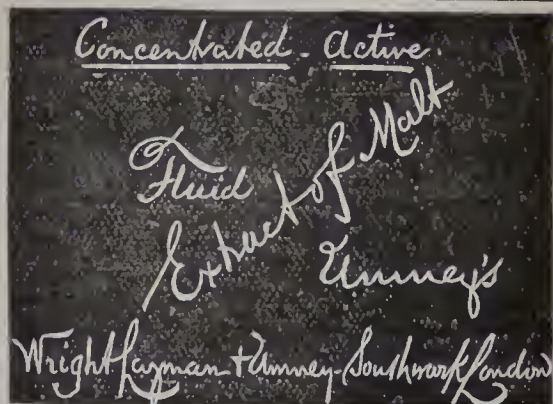 Concentrated - Active.
Fluid
Extract of Malt
Umney's
Wright Layman + Umney - Southwark London